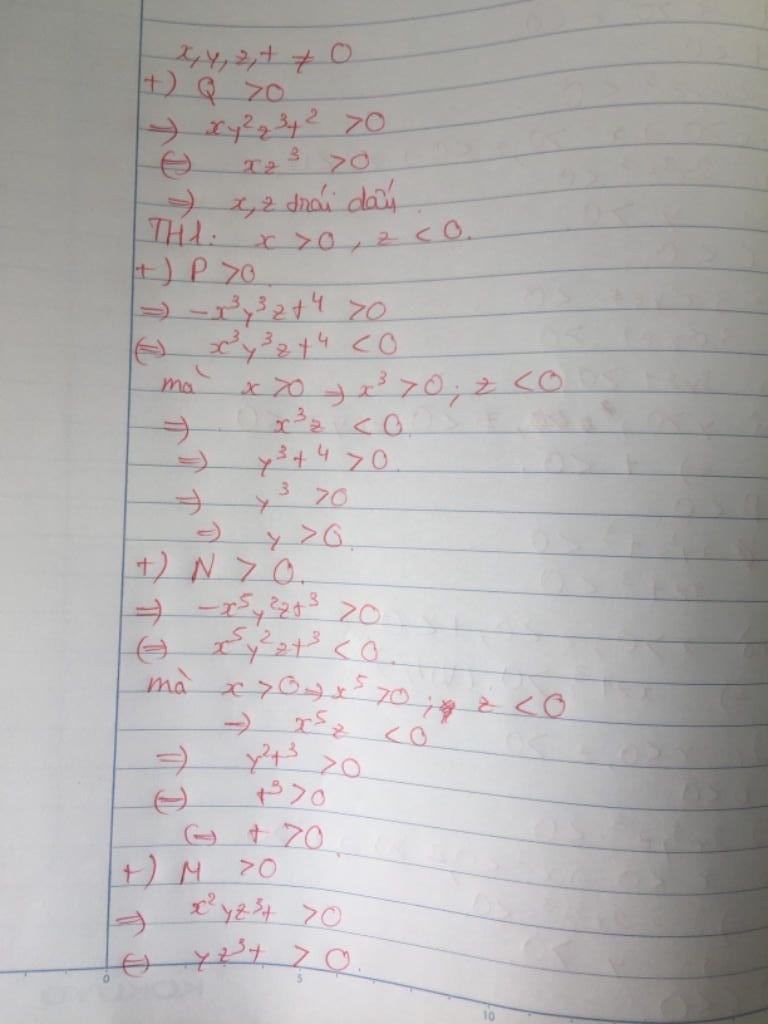 x, y, z, t ≠ 0
+) Q > 0
⇒ xy²z³t² > 0
⇔ xz³ > 0
⇒ x, z trái dấu.
TH1: x > 0, z < 0.
+) P > 0.
⇒ -x³y³zt⁴ > 0
⇔ x³y³zt⁴ < 0
mà x > 0 ⇒ x³ > 0; z < 0
⇒ x³z < 0.
⇒ y³t⁴ > 0.
⇒ y³ > 0
⇒ y > 0.
+) N > 0.
⇒ -x⁵y²zt³ > 0
⇔ x⁵y²zt³ < 0.
mà x > 0 ⇒ x⁵ > 0; z < 0
⇒ x⁵z < 0
⇒ y²t³ > 0
⇔ t³ > 0
⇔ t > 0.
+) M > 0
⇒ x²yz³t > 0
⇔ yz³t > 0.
0 5 10